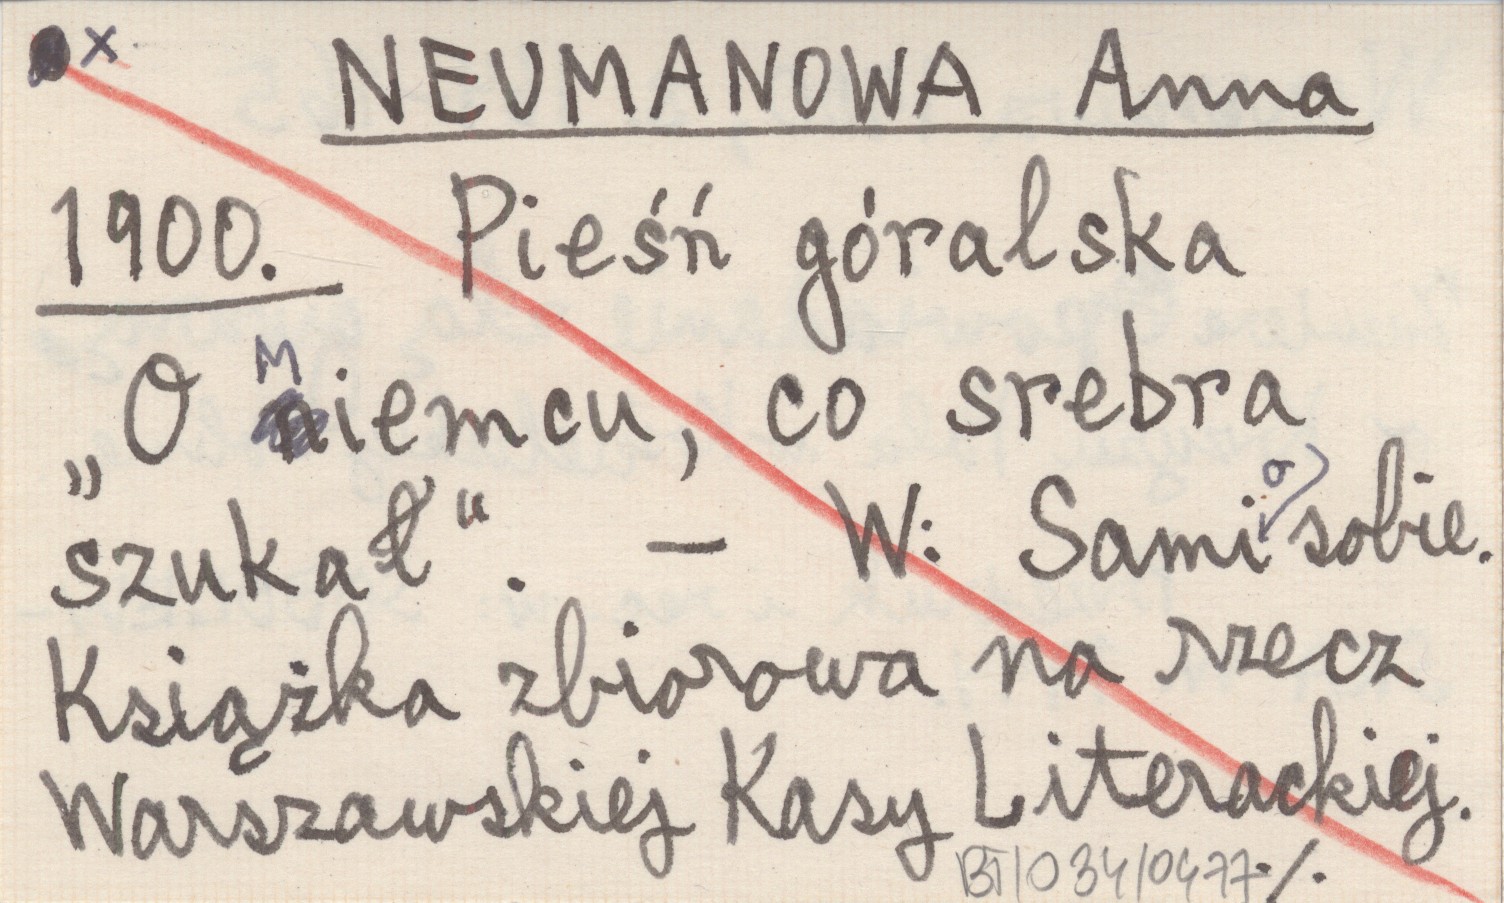 x
NEUMANOWA Anna
1900. Pieśń góralska
M
„O niemcu, co srebra
szukał“. — W: Sami sobie.
Książka zbiorowa na rzecz
Warszawskiej Kasy Literackiej.
BT/034/0477 ./.